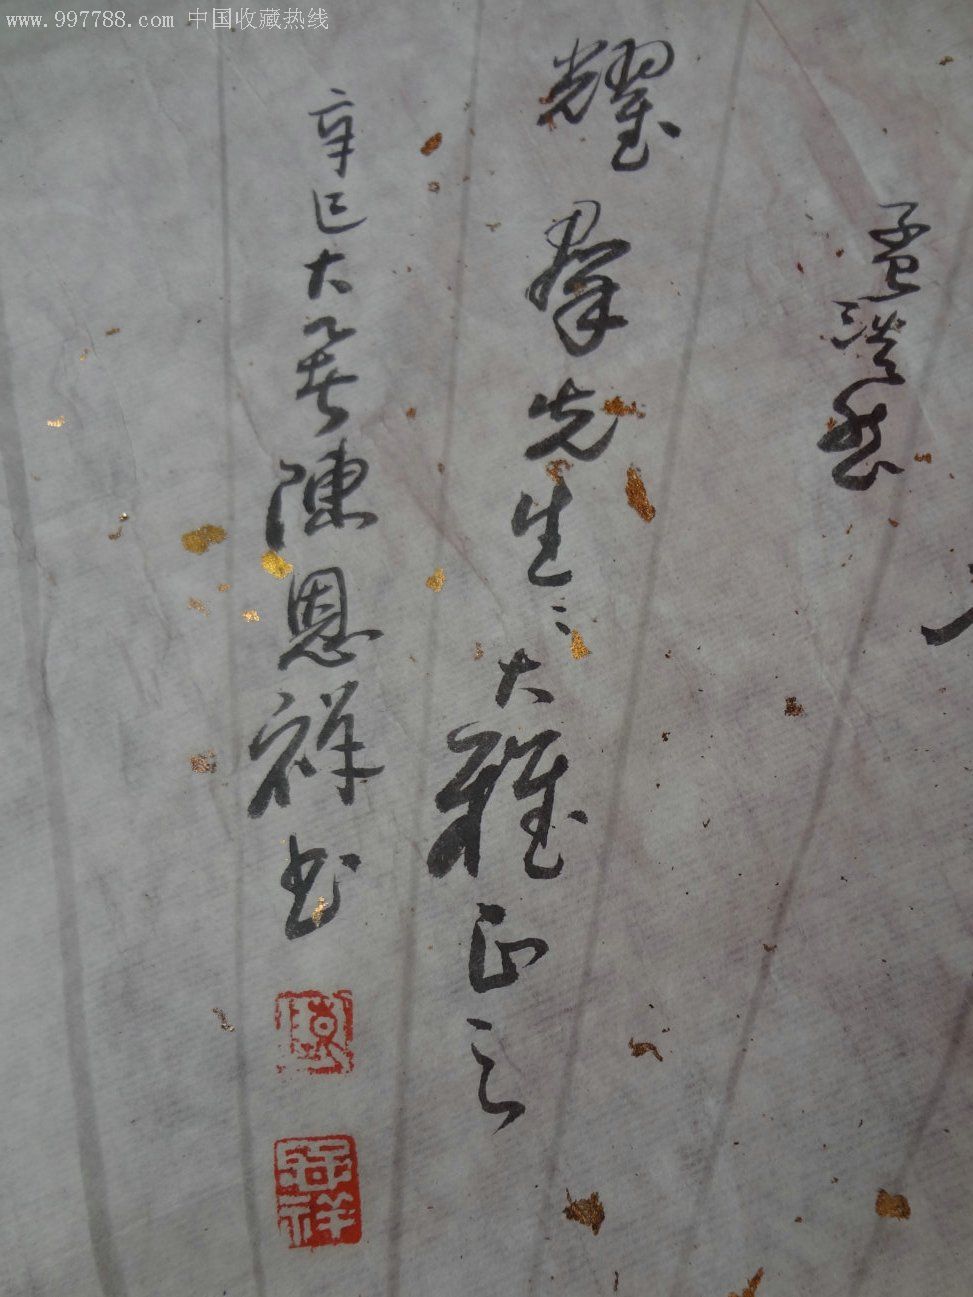 www.997788.com 中国收藏热线
孟浩然
耀群先生大雅正之
辛巳大暑陳恩祥书
恩祥